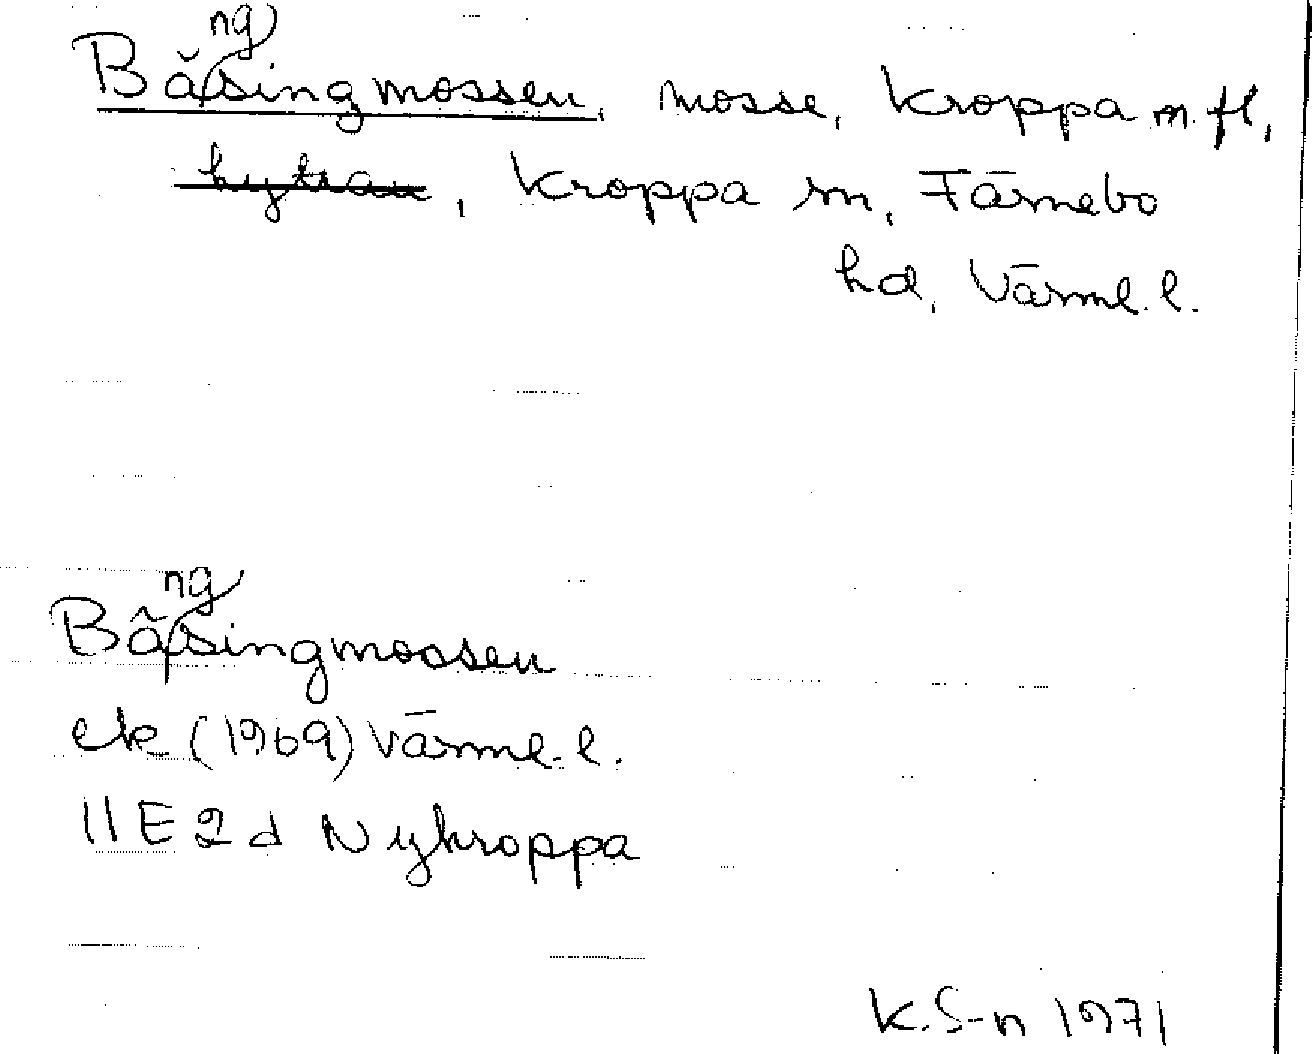 Bängsingmossen, mosse, Kroppa m. fl,
hyttan, Kroppa sn, Färnebo
hd, Värml. l.
Bängsingmossen
ek (1969) Värml. l.
11E2d Nykroppa
K. S-n 1971